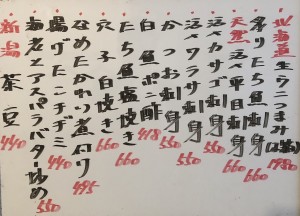 北海道 生ウニつまみ 1980
炙りたち魚刺身 550
天然 活平目刺身 660
活〆カサゴ刺身 660
活〆サワラ刺身 550
かつお刺身 550
白魚ポン酢 418
たち魚塩焼き 660
穴子白焼き 660
なめたかれい煮付け 495
揚げたこチヂミ 440
海老とアスパラバター炒め 550
新潟 茶豆 440